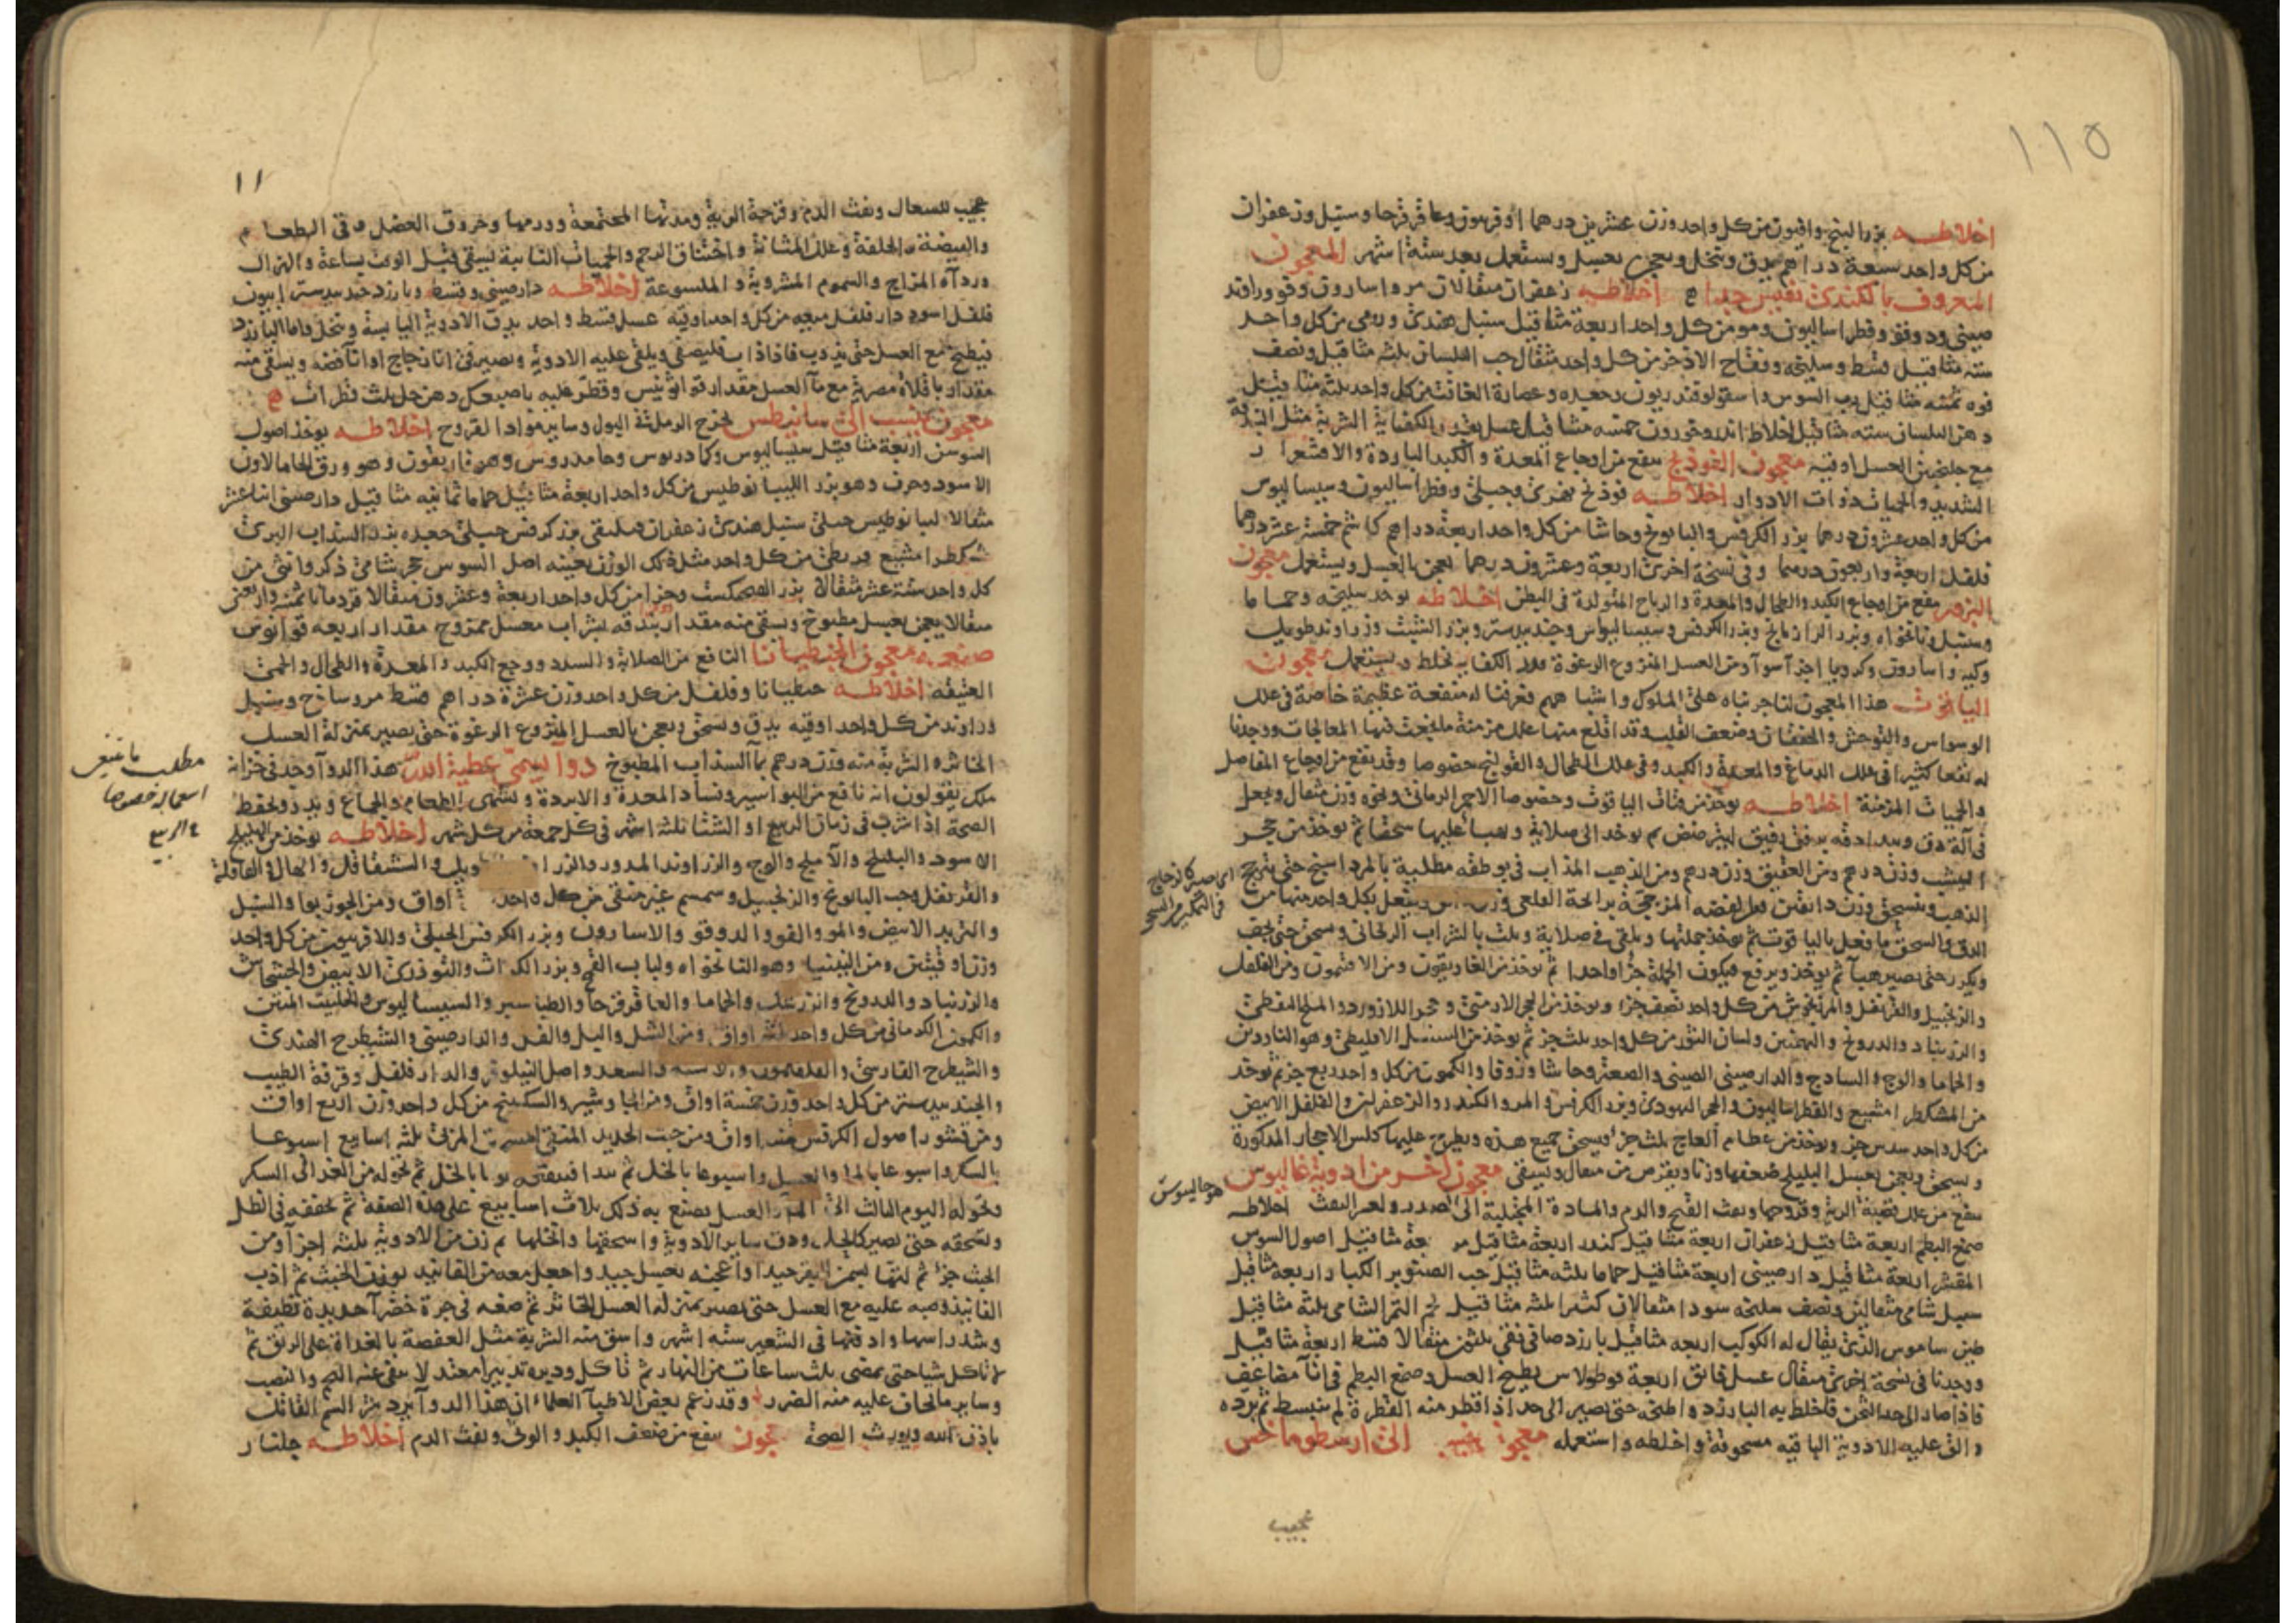 ١١٥
اخلاطه بزر البنج وافيون من كل واحد وزن عشرين درهما افربيون وعاقرقرحا وسنبل وزعفران
من كل واحد سبعة دراهم يدق وينخل ويعجن بعسل ويستعمل بعد ستة اشهر المعجون
المعروف بالكندى نفيس جدا اخلاطه زعفران مثقالان مر واسارون وفو وراوند
صينى ودوقو وفطراساليون ومو من كل واحد اربعة مثاقيل سنبل هندى ورومى من كل واحد
ستة مثاقيل قسط وسليخه وفقاح الاذخر من كل واحد مثقال حب البلسان ثلثه مثاقيل ونصف
فوه ثمنيه مثاقيل رب السوس واسقولوقندريون وجعده وعصارة الغافت من كل واحد ثلثه مثاقيل
دهن البلسان سته مثاقيل اخلاط اندروخورون خمسه مثاقيل عسل بقدر الكفاية الشربة مثل
مع جلنجبين العسل اوقيه معجون الفوذنج ينفع من اوجاع المعدة والكبد الباردة والاقشعرار
الشديد والحميات ذوات الادوار اخلاطه فوذنج نهرى وجبلى وفطراساليون وسيساليوس
من كل واحد عشرون درهما بزر الكرفس والبابونج وحاشا من كل واحد اربعة دراهم كاشم خمسة عشر درهما
فلفل اربعة واربعون درهما وفى نسخة اخرى اربعة وعشرون درهما يعجن بالعسل ويستعمل معجون
البزور ينفع من اوجاع الكبد والطحال والمعدة والرياح المتولدة فى البطن اخلاطه يوخذ سليخه وحماما
وسنبل ونانخواه وبزر الرازيانج وبزر الكرفس وسيساليوس وجندبيدستر وبزر الشبث وزراوند طويل
وكيه واسارون وكرويا اجزآ سوآ ومن العسل المنزوع الرغوة قدر الكفايه يخلط ويستعمل معجون
الياقوت هذا المعجون لنا جربناه على الملوك واشباههم فعرفنا له منفعة عظيمة خاصة فى علل
الوسواس والتوحش والخفقان وضعف القلب وقد اقلع منها علل مزمنة ما نجعت فيها المعالجات ووجدنا
له نفعا كثيرا فى علل الدماغ والمعدة والكبد وفى علل الطحال والقولنج خصوصا وقد ينفع من اوجاع المفاصل
والحميات المزمنة اخلاطه يوخذ من فتات الياقوت وخصوصا الاحمر الرمانى ونحوه وزن مثقال ويجعل
فى آلة دق ويبدا دقه بدق رقيق ليترضض ثم يوخذ الى صلاية ويهبأ عليها سحقا ثم يوخذ من حجر
اليشب وزن درهم ومن العقيق وزن درهم ومن الذهب المذاب فى بوطقه مطلية بالمرداسنج حتى يترجج
الذهب وينسحق وزن دانقين ومن الفضه المزججة برائحة القلعى وزن ويفعل بكل واحد منها من
الدق والسحق ما فعل بالياقوت ثم يوخذ جملتها ويلقى فى صلاية ويلت بالشراب الريحانى ويسحق حتى يجف
ويكرر حتى يصير هبآ ثم يوخذ ويرفع فيكون الجملة جزأ واحدا ثم يوخذ من الغاريقون ومن الافتيمون ومن الفلفل
والزنجبيل والقرنفل والمرزنجوش من كل واحد نصف جزء ويوخذ من الحجر الارمنى وحجر اللازورد والملح النفطى
والزرنباد والدرونج والبهمنين ولسان الثور من كل واحد ثلث جزء ثم يوخذ من السنبل الاقليطى وهو الناردين
والحماما والوج والساذج والدارصينى الصينى والصعتر وحاشا وزوفا والكمون من كل واحد ربع جزء ثم يوخذ
من المشكطرامشيع والفطراساليون والحجر اليهودى وبزر الكرفس والمر والكندر والزعفران والفلفل الابيض
من كل واحد سدس جزء ويوخذ من عظام العاج ثلث جزء ويسحق جميع هذه ويطرح عليها كلس الاحجار المذكورة
ويسحق ويعجن بعسل البليلج ضعفها وزنا ويقرص من مثقال ويسقى معجون اخر من ادوية غاليوس
ينفع من علل قصبة الرية وقروحها ونفث القيح والدم والمادة المتحلبة الى الصدر ولعسر النفث اخلاطه
صمغ البطم اربعة مثاقيل زعفران اربعة مثاقيل كندر اربعة مثاقيل مر مثاقيل اصول السوس
المقشر اربعة مثاقيل دارصينى اربعة مثاقيل حماما ثلثه مثاقيل حب الصنوبر الكبار اربعة مثاقيل
سنبل شامى مثقالين ونصف سليخه سودا مثقالان كثيرا ثلثه مثاقيل لحم التمر الشامى ثلثه مثاقيل
طين ساموس الذى يقال له الكوكب اربعه مثاقيل بارزد صافى نقى ثلثين مثقالا قسط اربعة مثاقيل
ووجدنا فى نسخة اخرى مثقال عسل فايق اربعة قوطولاس يطبخ العسل وصمغ البطم فى انآ مضاعف
فاذا صار الى حد الثخن فاخلط به البارزد واطبخه حتى يصير الى حد اذا قطر منه القطرة لم ينبسط ثم برده
والق عليه الادوية الباقيه مسحوقة واخلطه واستعمله معجون ينسب الى ارسطوماخس
هو جالينوس
عجيب
١١
عجيب للسعال ونفث الدم وقرحة الرية ومدتها المجتمعة وورمها وخروق العضل وفى الطعام
والهيضة والخلفة وعلل المثانة واختناق الرحم والحميات النايبة يسقى قبل الوقت بساعة والهزال
وردآة المزاج والسموم المشروبة والملسوعة اخلاطه دارصينى وقسط وبارزد جندبيدستر افيون
فلفل اسود دارفلفل ميعه من كل واحد اوقيه عسل قسط واحد يدق الادوية اليابسة وينخل واما البارزد
فيطبخ مع العسل حتى يذوب فاذا ذاب فليصفى ويلقى عليه الادوية ويصير فى انآ زجاج او انآ فضه ويسقى منه
مقدار باقلاة مصرية مع مآ العسل مقدار قوانوس وقطر عليه باصبعك دهن حل ثلث قطرات
معجون ينسب الى سانيطس يخرج الرمل فى البول وساير مواد القروح اخلاطه يوخذ اصول
السوسن اربعة مثاقيل سيساليوس وكمادريوس وحامدروس وهو وهو ورق الخامالاون
الاسود وحرف وهو بزر الليبانوطيس من كل واحد اربعة مثاقيل حماما ثمانيه مثاقيل دارصينى اثنا عشر
مثقالا ليبانوطيس جبلى سنبل هندى زعفران بزر كرفس جبلى جعده بزر السذاب البرى
مشكطرامشيع من كل واحد مثل ذلك الوزن بعينه اصل السوس حجر شامى ذكر وانثى من
كل واحد ستة عشر مثقالا بزر وحزا من كل واحد اربعة وعشرون مثقالا قردمانا ثمنيه واربعين
مثقالا يعجن بعسل مطبوخ ويسقى منه مقدار بندقه بشراب معسل ممزوج مقدار اربعه قوانوس
صنعة معجون الجنطيانا النافع من الصلابة والسدد ووجع الكبد والمعدة والطحال والحمى
العتيقه اخلاطه جنطيانا وفلفل من كل واحد وزن عشرة دراهم قسط مر وساذج وسنبل
وراوند من كل واحد اوقيه يدق ويسحق ويعجن بالعسل المنزوع الرغوة حتى يصير بمنزلة العسل
الخاثره الشربة منه قدر درهم بمآ السذاب المطبوخ دوآ يسمى عطية الله هذا الدوآ وجد فى خزانة
ملك يقولون انه نافع من البواسير وفساد المعدة والابردة ويشهى الطعام والجماع ويزيد ويحفظ
الصحة اذا شرب فى زمان الربيع او الشتا ثلثه اشهر فى كل جمعة من كل شهر اخلاطه يوخذ من الهليلج
الاسود والبليلج والاملج والوج والزراوند المدور والزراوند الطويل والشقاقل والهال والقاقلة
والقرنفل وحب البابونج والزنجبيل وسمسم غير منقى من كل واحد اواق ومن الجوزبوا والسنبل
والتربد الابيض والمو والفو والدوقو والاسارون وبزر الكرفس الجبلى والافربيون من كل واحد
وزن اوقيتين ومن وهو النانخواه ولباب القمح وبزر الكراث والتوذرى الابيض والخشخاش
والزرنباد والدرونج والحماما والعاقرقرحا والطباشير والسيساليوس والحلتيت المنتن
والكمون الكرمانى من كل واحد ثلثه اواق ومن الشل والبل والفل والدارصينى والشيطرج الهندى
والشيطرج الفارسى والفلفلمون والاشنه والسعد واصل النيلوفر والدارفلفل وقرفة الطيب
والجندبيدستر من كل واحد وزن خمسة اواق ومن الجاوشير والسكبينج من كل واحد وزن اربع اواق
ومن قشور اصول الكرفس اواق ومن خبث الحديد المنقى المربى ثلثه اسابيع اسبوعا
بالسكر واسبوعا بالما والعسل واسبوعا بالخل ثم تبدا فتنقعه يوما بالخل ثم تحوله من الغد الى السكر
وتحوله اليوم الثالث الى المآ والعسل يصنع به ذلك ثلاث اسابيع على هذه الصفة ثم تجففه فى الظل
وتسحقه حتى يصير كالكحل ودق ساير الادوية واسحقها وانخلها ثم زن من الادوية ثلثه اجزآ ومن
الخبث جزء ثم لتها بسمن البقر جيدا واعجنه بعسل جيد واجعل معه من الفانيد بوزن الخبث ثم اذب
الفانيذ وصبه عليه مع العسل حتى يصير بمنزله العسل الخاثر ثم صفه فى جرة خضرآ جديدة نظيفة
وشد راسها وادفنها فى الشعير سته اشهر واسق منه الشربة مثل العفصة بالغداة على الريق ثم
لا تاكل شيا حتى يمضى ثلث ساعات من النهار ثم تاكل وديره تدبيرا معتدلا
وساير ما تخاف عليه منه الضرر وقد زعم بعض الاطبآ العلماء ان هذا الدوآ يبرد من السم القاتل
باذن الله ويورث الصحة معجون ينفع من ضعف الكبد والونى ونفث الدم اخلاطه جلنار
مطلب ما ينبغى
استعماله خصوصا
فى الربيع